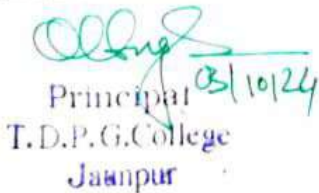 03/10/24
Principal
T.D.P.G.College
Jaunpur